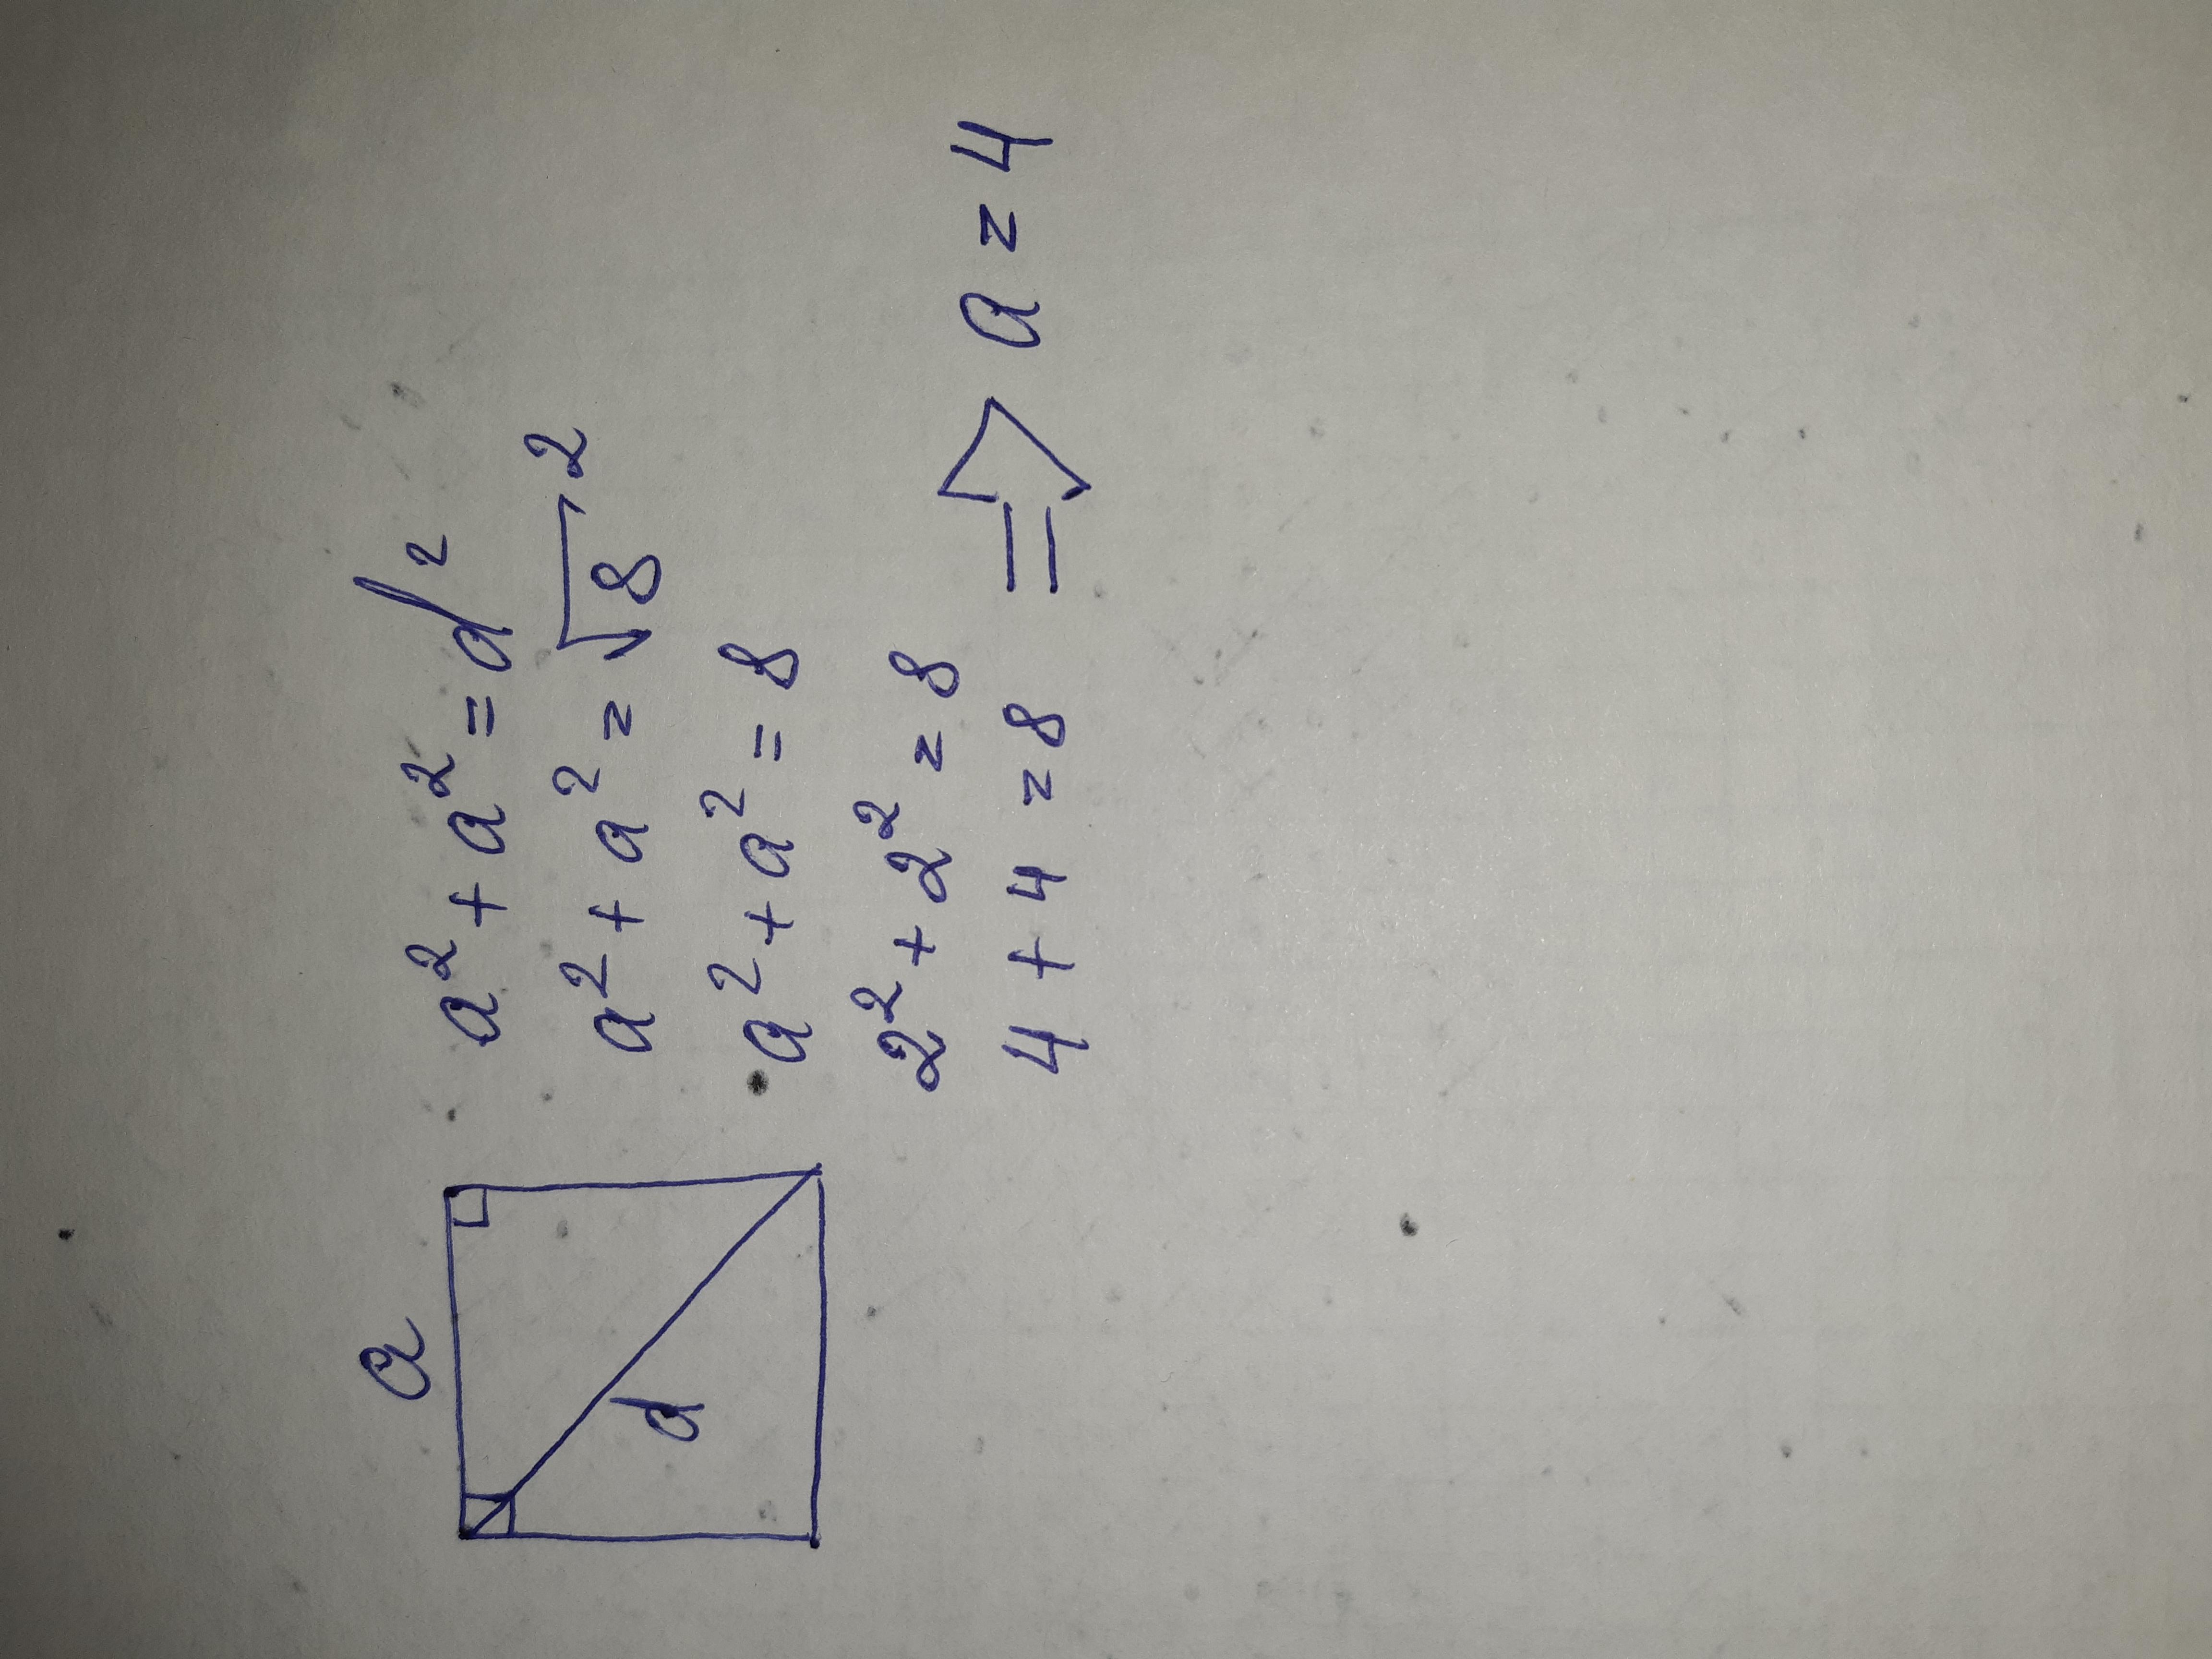 a
d
a² + a² = d²
a² + a² = √8²
a² + a² = 8
2² + 2² = 8
4 + 4 = 8 ⇒ a = 4